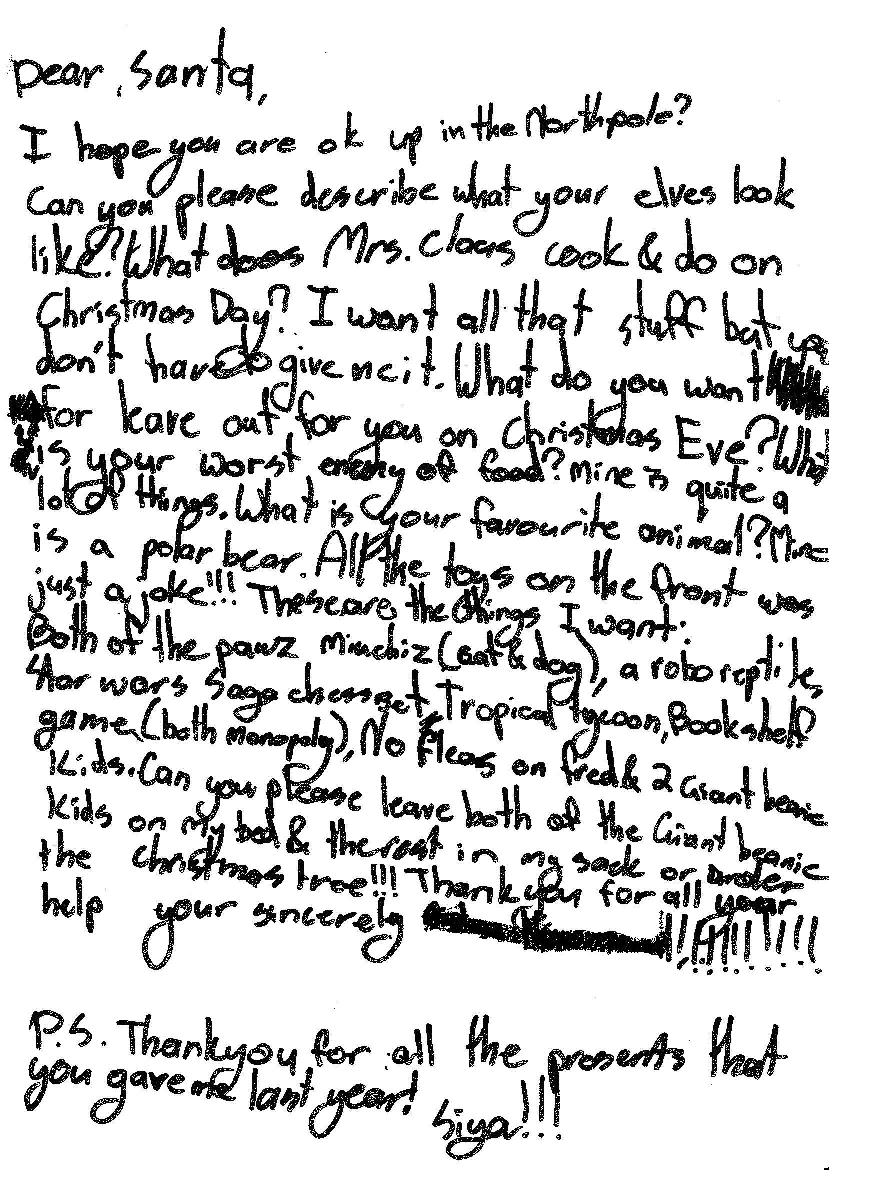 Dear, Santa,
I hope you are ok up in the Northpole?
Can you please describe what your elves look
like? What does Mrs. Claus cook & do on
Christmas Day? I want all that stuff but you
don't have to give me it. What do you want
for leave out for you on Christmas Eve? What
is your worst enemy of food? Mine is quite a
lot of things. What is your favourite animal? Mine
is a polar bear. All the toys on the front was
just a joke!!! These are the things I want:
Both of the pawz Mimchiz (cat & dog), a robo reptiles,
Star wars Saga chess set, Tropical Tycoon, Bookshelf
game, (both monopoly), No Fleas on fred & 2 Giant beanie
kids. Can you please leave both of the Giant beanie
kids on my bed & the rest in my sack or under
the christmas tree!!! Thankyou for all your
help your sincerely !!!!!!!!!!
P.S. Thankyou for all the presents that
you gave me last year!
Siya!!!